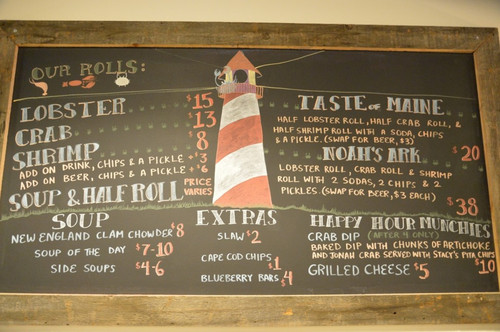 OUR ROLLS:
LOBSTER $15
CRAB $13
SHRIMP $8
ADD ON DRINK, CHIPS & A PICKLE +$3
ADD ON BEER, CHIPS & A PICKLE +$6
SOUP & HALF ROLL PRICE VARIES
TASTE OF MAINE
HALF LOBSTER ROLL, HALF CRAB ROLL, &
HALF SHRIMP ROLL WITH A SODA, CHIPS
& A PICKLE. (SWAP FOR BEER, $3) $20
NOAH'S ARK
LOBSTER ROLL, CRAB ROLL & SHRIMP
ROLL WITH 2 SODAS, 2 CHIPS & 2
PICKLES. (SWAP FOR BEER, $3 EACH) $38
SOUP
NEW ENGLAND CLAM CHOWDER $8
SOUP OF THE DAY $7-10
SIDE SOUPS $4-6
EXTRAS
SLAW $2
CAPE COD CHIPS $1
BLUEBERRY BARS $4
HAPPY HOUR MUNCHIES
CRAB DIP (AFTER 4 ONLY)
BAKED DIP WITH CHUNKS OF ARTICHOKE
AND JONAH CRAB SERVED WITH STACY'S PITA CHIPS $10
GRILLED CHEESE $5